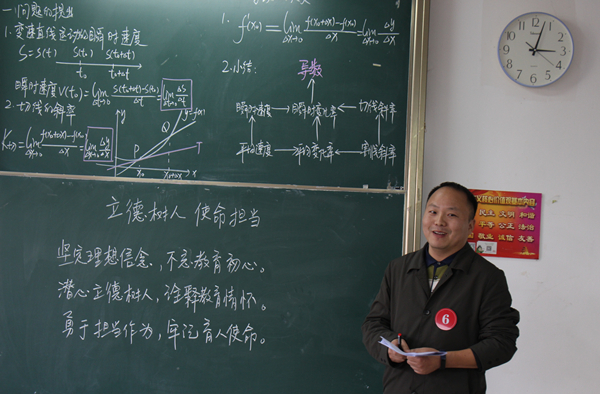 一.问题的提出
1. 变速直线运动的瞬时速度
S=S(t) S(t₀) S(t₀+Δt)
t₀ t₀+Δt
瞬时速度 V(t₀)=lim Δt→0 S(t₀+Δt)-S(t₀)/Δt=lim Δt→0 ΔS/Δt
2. 切线的斜率
K切=lim Δx→0 f(x₀+Δx)-f(x₀)/Δx=lim Δx→0 Δy/Δx
y y=f(x)
Q
P T
x₀ x₀+Δx x
1. f'(x₀)=lim Δx→0 f(x₀+Δx)-f(x₀)/Δx=lim Δx→0 Δy/Δx
2. 小结: 导数
瞬时速度 → 瞬时变化率 ← 切线斜率
平均速度 → 平均变化率 ← 割线斜率
立德树人 使命担当
坚定理想信念,不忘教育初心。
潜心立德树人,诠释教育情怀。
勇于担当作为,牢记育人使命。
义核心价值观基本内容
民主 文明 和谐
平等 公正 法治
敬业 诚信 友善
6
12 1 2 3 4 5 6 7 8 9 10 11